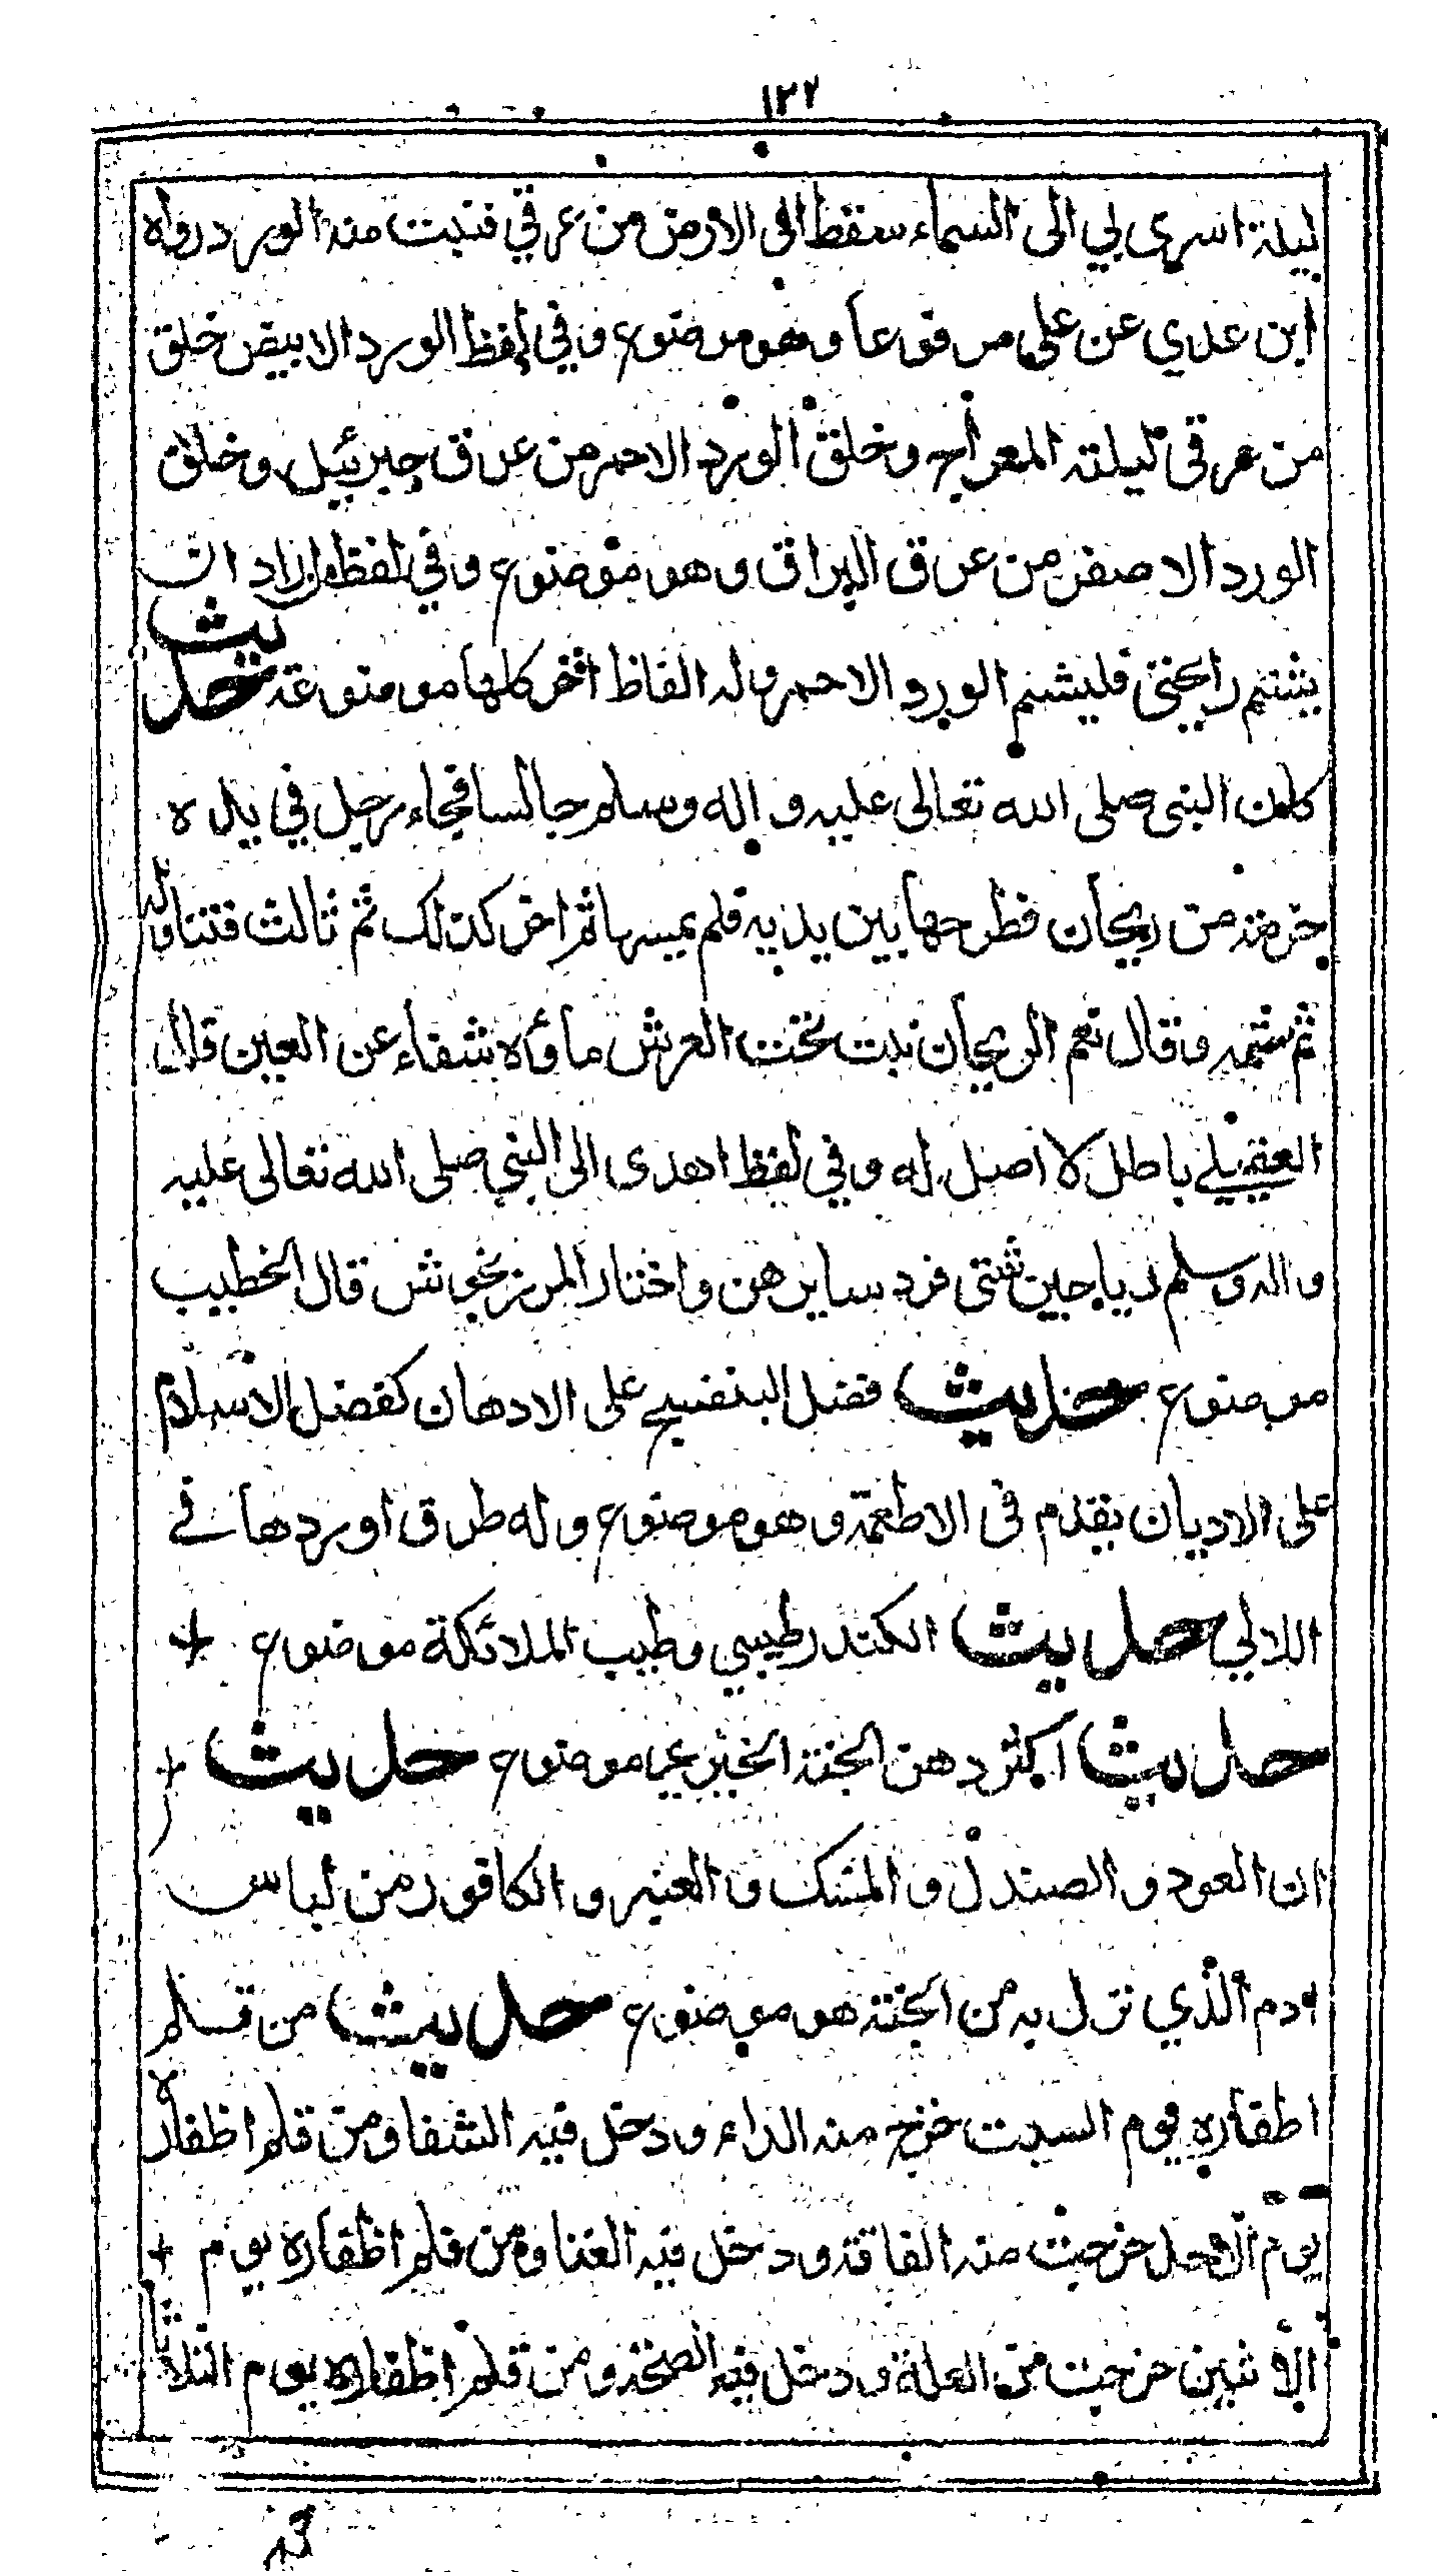 ١٢٢
ليلة اسرى بي الى السماء سقط الى الارض من عرقي فنبت منه الورد رواه
ابن عدي عن علي مرفوعا وهو موضوع وفي لفظ الورد الابيض خلق
من عرقي ليلته المعراج وخلق الورد الاحمر من عرق جبرئيل وخلق
الورد الاصفر من عرق البراق وهو موضوع وفي لفظ من اراد ان
يشتم رايحتى فليشم الورد الاحمر وله الفاظ اخر كلها موضوعة حديث
كان النبى صلى الله تعالى عليه و اله وسلم جالسا فجاء رجل في يده
حزمة من ريحان فطرحها بين يديه فلم يمسها ثم اخر كذلك ثم ثالث فتناوله
ثم شمه وقال نعم الريحان نبت تحت العرش ماؤه شفاء عن العين قال
العقيلے باطل لا اصل له وفي لفظ اهدى الى النبي صلى الله تعالى عليه
واله وسلم رياحين شتى فرد سايرهن واختار المرزنجوش قال الخطيب
موضوع حديث فضل البنفسج على الادهان كفضل الاسلام
على الاديان يقدم فى الاطعمة وهو موضوع وله طرق اوردها فے
اللالي حديث الكندر طيبي وطيب الملائكة موضوع
حديث اكثر دهن الجنة الخيري موضوع حديث
ان العود و الصندل و المشك و العنبر و الكافور من لباس
ادم الذي نزل به من الجنة هو موضوع حديث من قلم
اظفاره يوم السبت خرج منه الداء ودخل فيه الشفا ومن قلم اظفاره
يوم الاحد خرجت منه الفاقة ودخل فيه الغنا ومن قلم اظفاره يوم
الاثنين خرجت منه العلة ودخل فيه الصحة ومن قلم اظفاره يوم الثلاثا